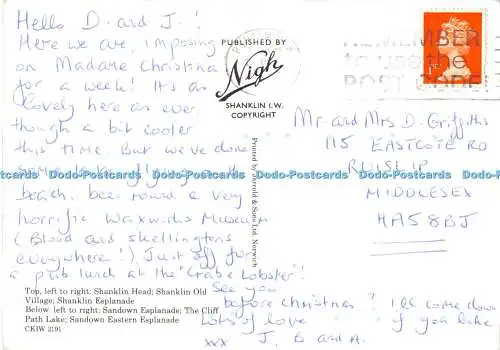 Hello D. and J.!
Here we are, imposing
on Madame Christina
for a week! It's as
lovely here as ever
though a bit cooler
this time. But we've done
some kite flying on the
beach, been round a very
horrific Waxworks Museum
(Blood and skellingtons
everywhere!) Just off for
a pub lunch at the "Crab & Lobster"!
See you
before christmas? I'll come down
if you like
Lots of love
xxx J, B and A.
PUBLISHED BY
Nigh
SHANKLIN I.W.
COPYRIGHT
Printed by Jarrold & Sons Ltd. Norwich
REMEMBER
to use the
POST CODE
1ST
Mr and Mrs D. Griffiths
115 EASTCOTE RD
RUISLIP
MIDDLESEX
HA5 8BJ
Dodo-Postcards Dodo-Postcards Dodo-Postcards Dodo-Postcards Dodo-Postcards Dodo-Postcards
Top, left to right: Shanklin Head; Shanklin Old
Village; Shanklin Esplanade
Below left to right: Sandown Esplanade; The Cliff
Path Lake; Sandown Eastern Esplanade
CKIW 2191